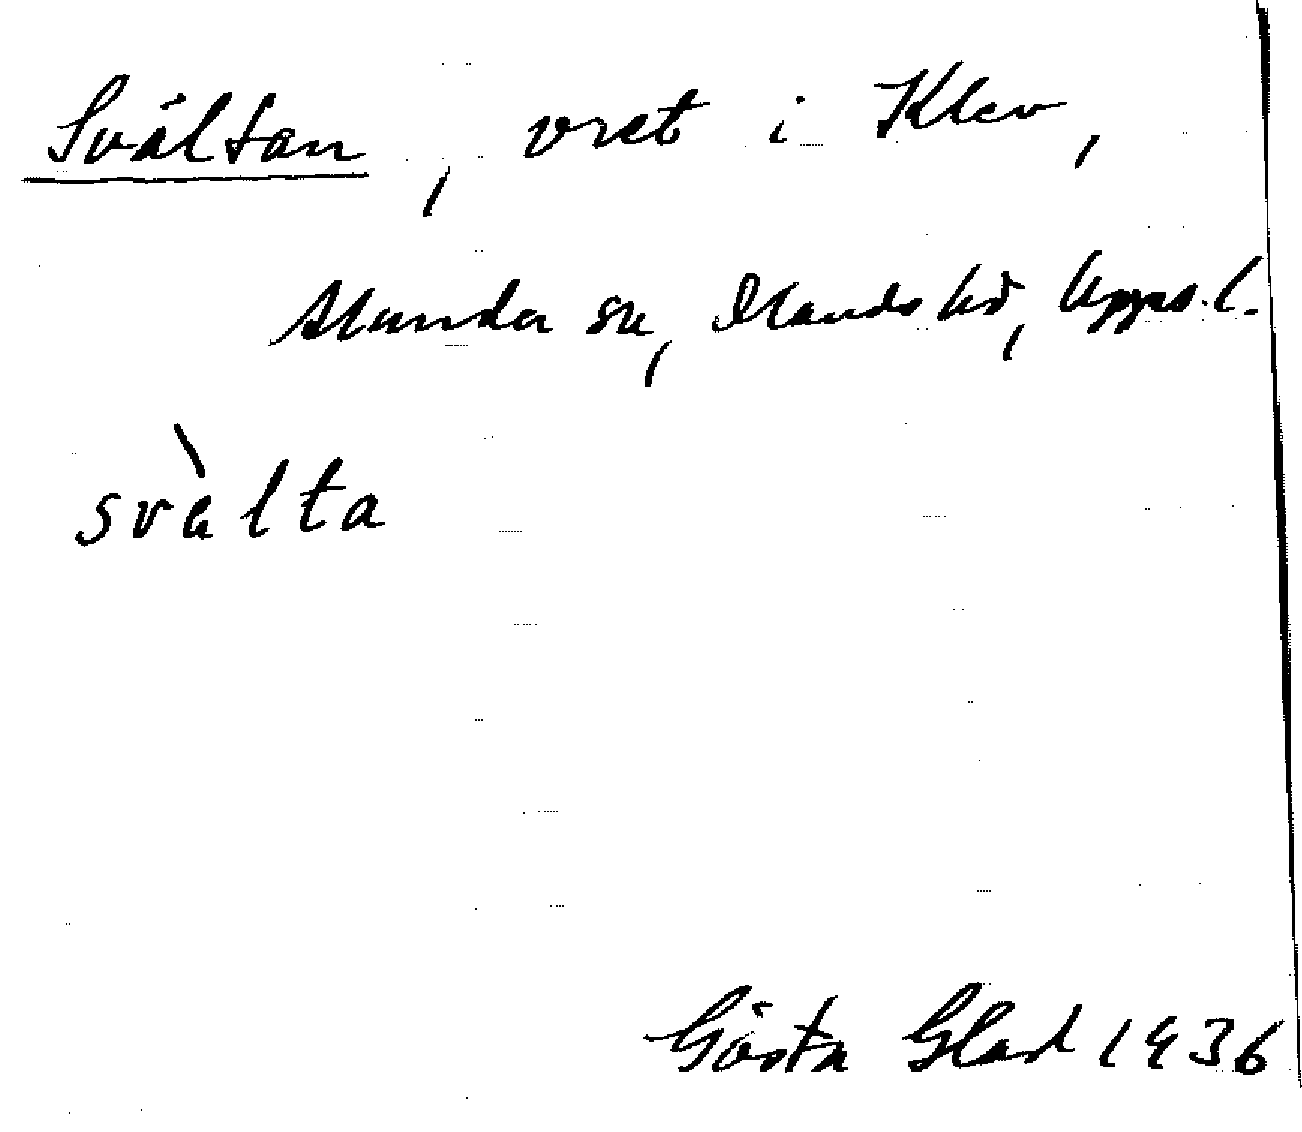 Svältan, vret i Klev,
Alunda sn, Olands hd, Upps. l.
svὰlta
Gösta Glad 1936